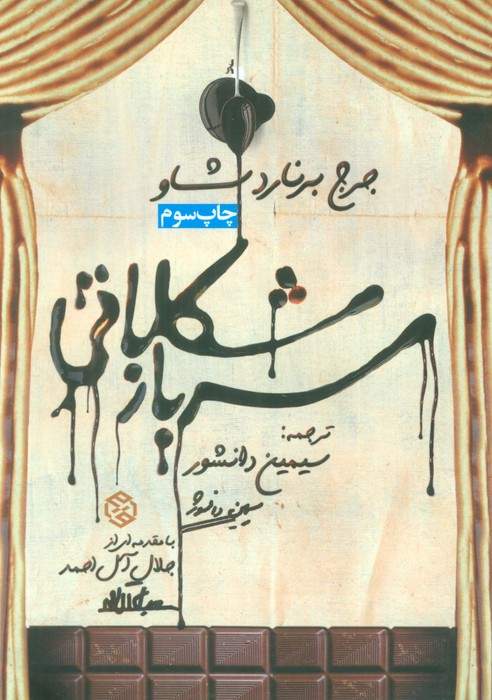 جرج برنارد شاو
چاپ سوم
سرباز شکلاتی
ترجمه:
سیمین دانشور
سیمین دانشور
با مقدمه‌ای از
جلال آل احمد